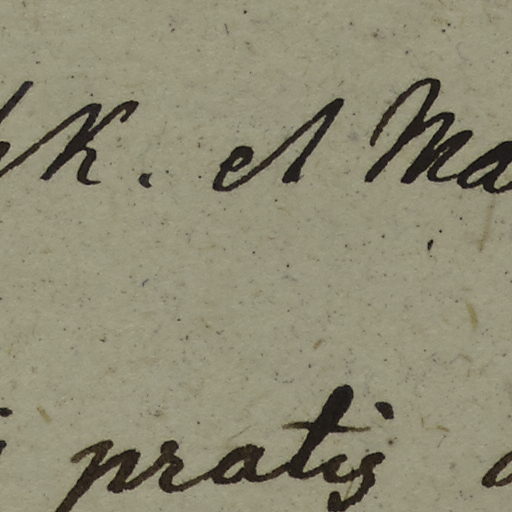 K. et Ma
pratis